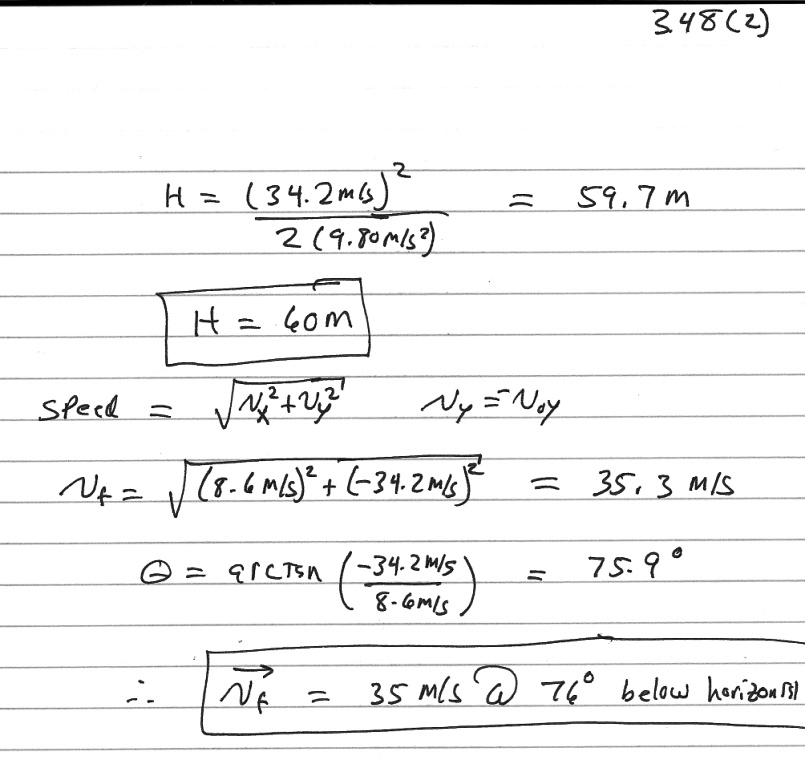 3.48(2)
H = (34.2 m/s)² / 2(9.80 m/s²) = 59.7 m
H = 60 m
speed = √(Vx² + Vy²) Vy = -Voy
Vf = √((8.6 m/s)² + (-34.2 m/s)²) = 35.3 m/s
Θ = arctan (-34.2 m/s / 8.6 m/s) = 75.9°
∴ Vf = 35 m/s @ 76° below horizontal